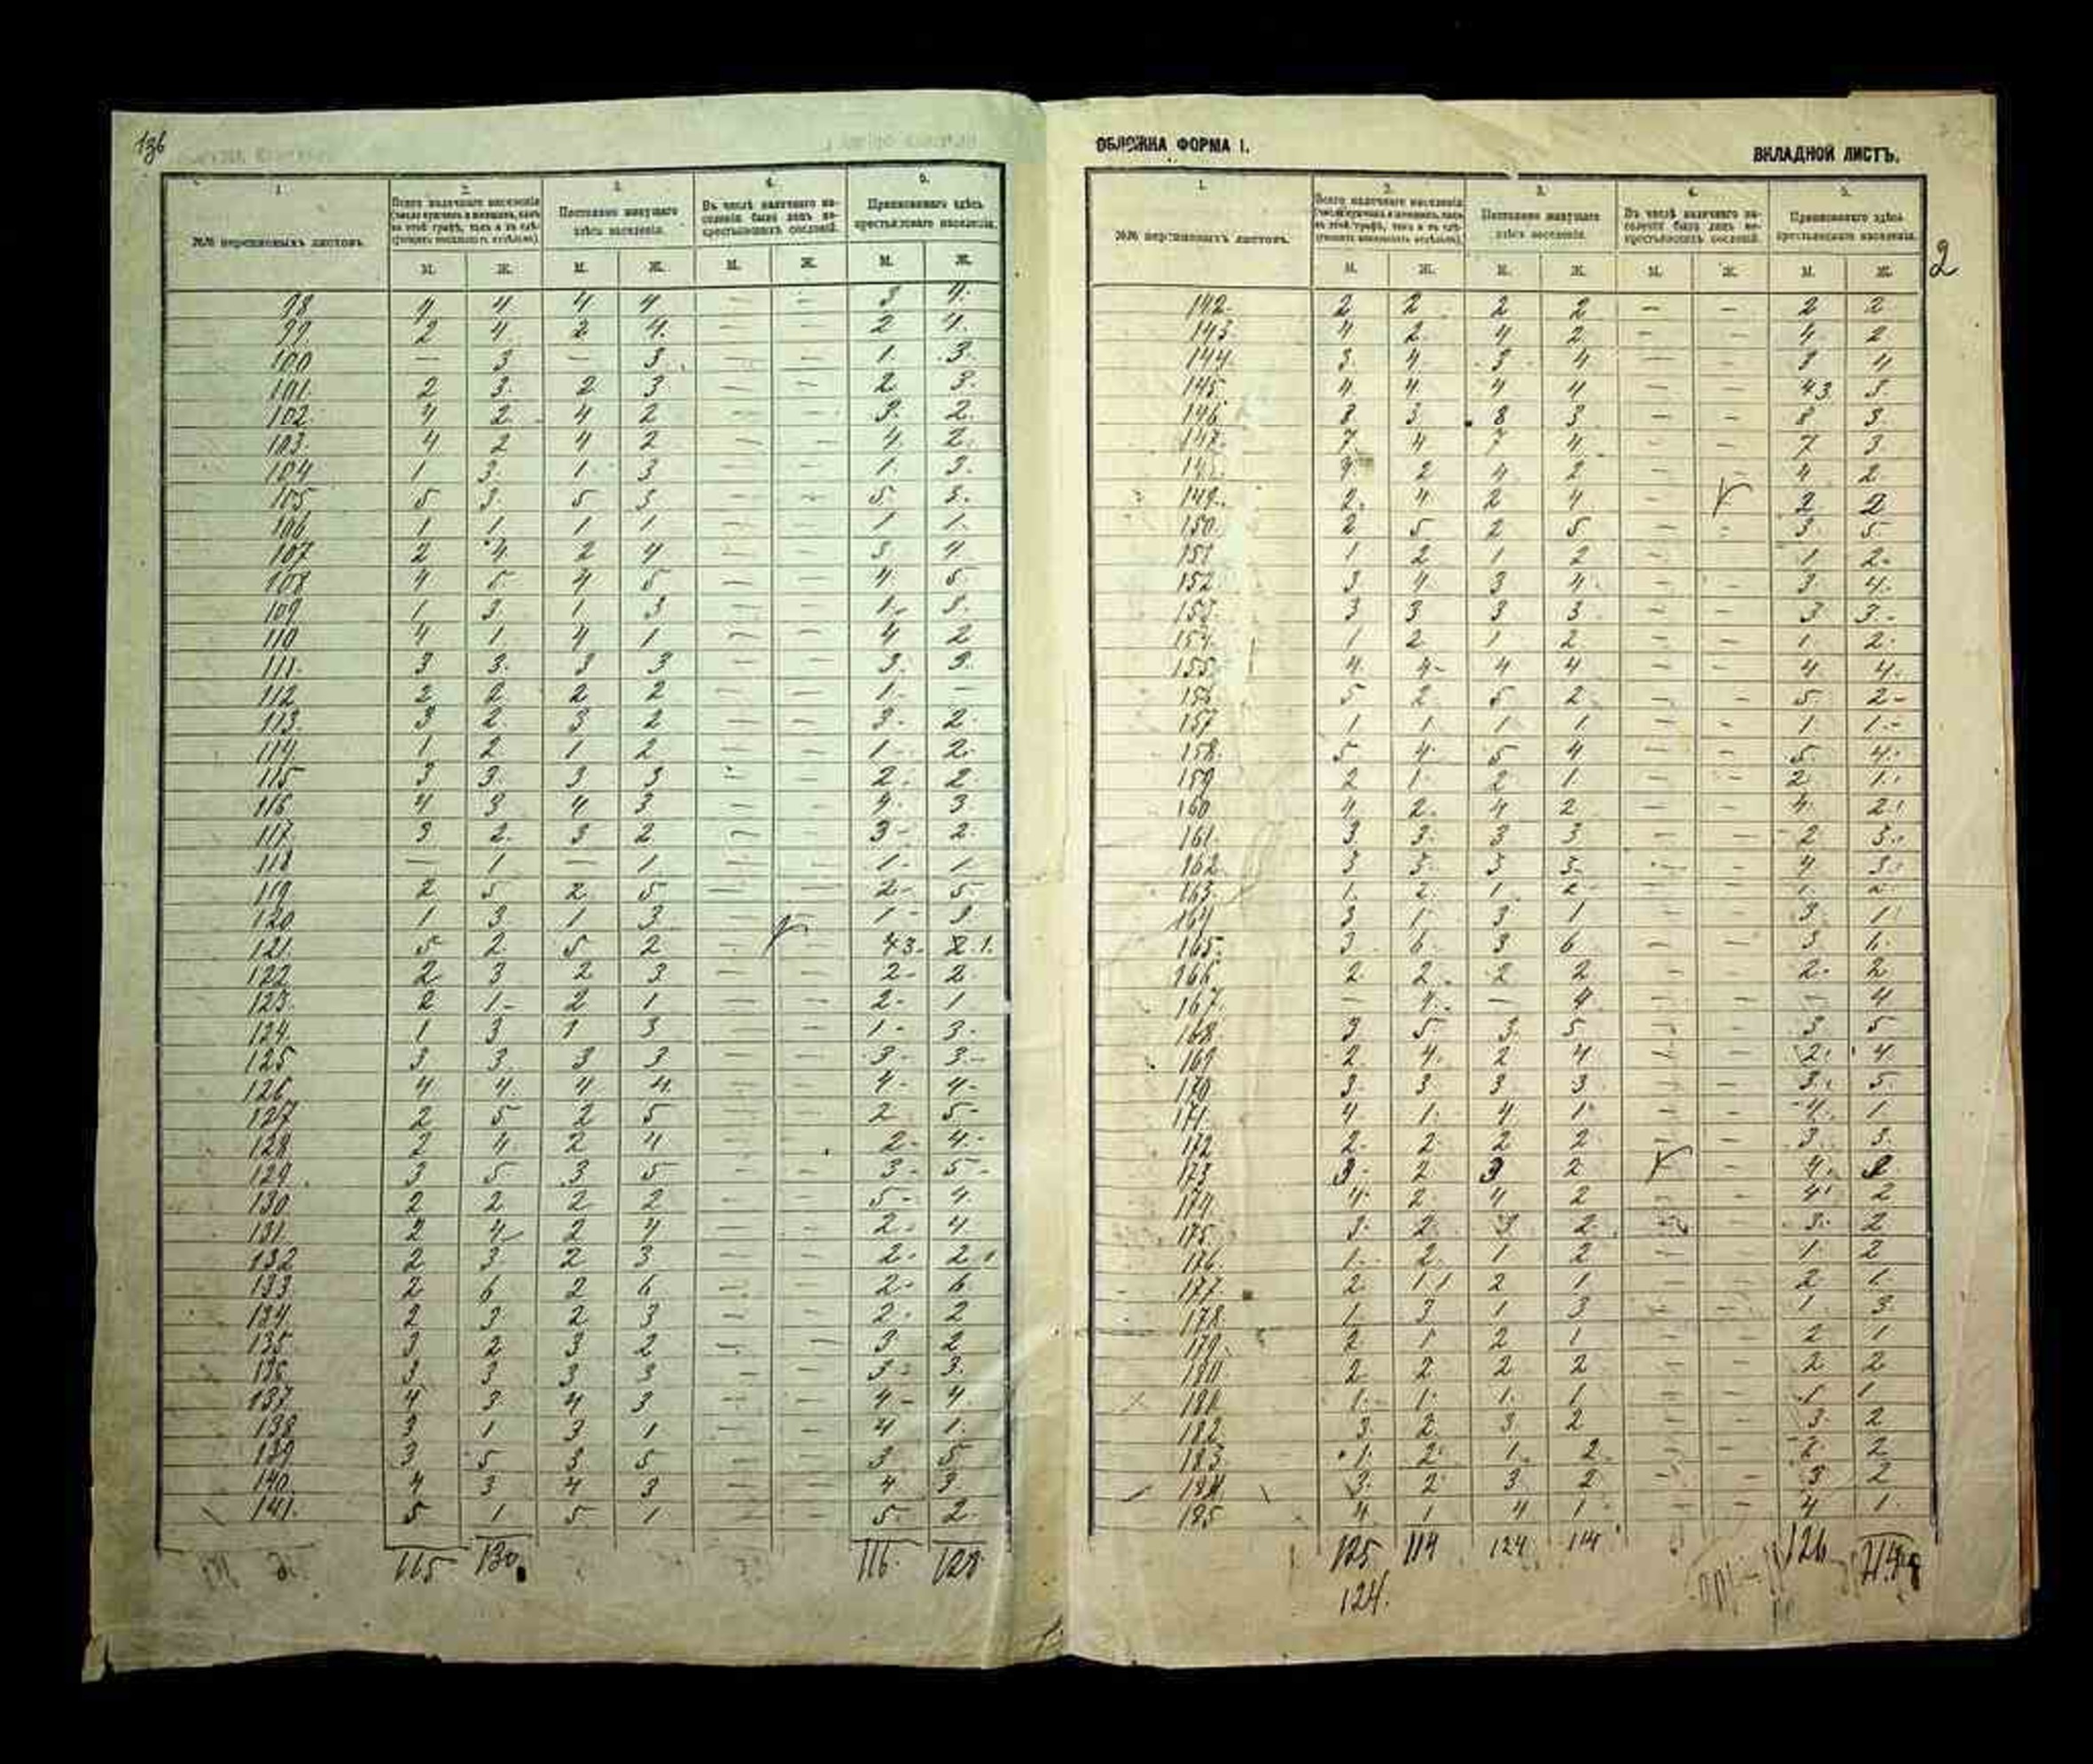 136
1.
2.
3.
4.
5.
№№ переписныхъ листовъ.
Всего наличнаго населенія
Постоянно живущаго здѣсь населенія.
Въ числѣ наличнаго населенія было лицъ не-крестьянскихъ сословій.
Приписаннаго здѣсь крестьянскаго населенія.
М. Ж. М. Ж. М. Ж. М. Ж.
98 4 4 4 4 — — 3 4.
99. 2 4. 2 4. — — 2 4.
100 — 3 — 3. — — 1. 3.
101. 2 3. 2 3 — — 2 3.
102. 4 2. 4 2 — — 3. 2.
103. 4 2 4 2 — — 4. 2.
104 1 3. 1. 3 — — 1. 3.
105 5 3. 5 3 — — 5. 3.
106 1 1. 1 1. — — 1 1.
107 2 4. 2 4 — — 3. 4.
108 4 5. 4 5 — — 4. 5.
109 1 3. 1. 3 — — 1.- 3.
110 4 1. 4 1 — — 4 2
111. 3 3. 3 3 — — 3. 3.
112 2 2 2 2 — — 1.- —
113. 3 2. 3 2 — — 3.- 2.
114. 1 2 1 2 — — 1- 2.
115 3 3. 3 3 — — 2- 2
116 4 3 4 3 — — 4. 3
117. 3 2. 3 2 — — 3- 2.
118 — 1 — 1. — — 1.- 1
119 2 5 2 5 — — 2- 5
120 1 3 1 3. — — 1- 3.
121. 5 2. 5 2 — — 4 3. 2 1.
122 2 3 2 3 — — 2- 2.
123. 2 1.- 2 1 — — 2- 1
124. 1 3 1 3 — — 1- 3.
125 3 3. 3 3 — — 3- 3.-
126 4 4. 4 4. — — 4- 4-
127 2 5 2 5 — — 2 5-
128 2 4. 2 4 — — 2- 4.-
129 3 5 3 5 — — 3- 5-
130 2 2 2 2 — — 5- 4.
131. 2 4 2 4 — — 2- 4
132 2 3 2 3 — — 2- 2.
133 2 6 2 6 — — 2- 6
134 2 3. 2 3 — — 2- 2
135 3 2 3 2 — — 3 2
136 3 3 3 3 — — 3- 3.
137 4 3. 4 3 — — 4- 4.
138 3 1 3. 1 — — 4 1.
139 3 5 3. 5 — — 3 5
140. 4 3 4 3 — — 4 3.
141. 5 1. 5. 1 — — 5. 2.
115 130. 116. 128
ОБЛОЖКА ФОРМА I.
ВКЛАДНОЙ ЛИСТЪ.
2
1.
2.
3.
4.
5.
№№ переписныхъ листовъ.
Всего наличнаго населенія
Постоянно живущаго здѣсь населенія.
Въ числѣ наличнаго населенія было лицъ не-крестьянскихъ сословій.
Приписаннаго здѣсь крестьянскаго населенія.
М. Ж. М. Ж. М. Ж. М. Ж.
142. 2 2 2 2 — — 2 2
143. 4 2. 4 2 — — 4. 2
144. 3. 4 3 4 — — 3 4
145. 4 4. 4 4 — — 4 3. 3.
146. 8 3. 8 3 — — 8 3.
147. 7 4 7 4 — — 7 3
148. 4. 2 4 2 — — 4 2.
149. 2. 4 2 4 — 2 2
150. 2 5 2 5 — — 3. 5.
151 1 2 1 2 — — 1 2-
152. 3 4. 3 4. — — 3. 4.
153. 3 3 3 3 — — 3 3.-
154. 1 2 1 2. — — 1. 2.
155. 4. 4- 4 4 — — 4 4.
156 5 2 5 2 — — 5. 2-
157 1 1. 1 1 — — 1. 1.-
158. 5. 4. 5 4 — — 5. 4.
159 2 1. 2. 1 — — 2 1.
160 4 2. 4 2 — — 4. 2.
161. 3 3. 3 3 — — 2. 3.
162. 3 3. 3 3. — — 4. 3.
163. 1. 2. 1. 2 — — 1. 2.
164 3 1. 3 1 — — 3. 1.
165. 3. 6. 3 6 — — 3 6.
166 2 2. 2 2. — — 2. 2
167. — 4. — 4. — — — 4
168. 3 5 3. 5 — — 3 5
169 2 4. 2 4 — — 2. 4.
170. 3. 3 3 3. — — 3. 5.
171. 4. 1. 4. 1. — — 4. 1
172 2. 2 2 2. — — 3. 3.
173 3. 2 3 2 — 4. 2
174 4. 2. 4 2 — — 4. 2
175. 3. 2. 3 2. — — 3. 2
176. 1. 2. 1 2 — — 1. 2
177. 2. 1 1 2 1 — — 2. 1.
178. 1. 3 1 3. — — 1. 3.
179. 2. 1 2 1 — — 2 1
180 2 2 2 2 — — 2 2
181. 1. 1. 1. 1 — — 1 1.
182. 3. 2 3. 2 — — 3. 2
183. 1. 2. 1. 2. — — 2. 2
184 3. 2 3 2 — — 3 2
185 4. 1 4 1. — — 4 1.
125 114 124 114 126
124.